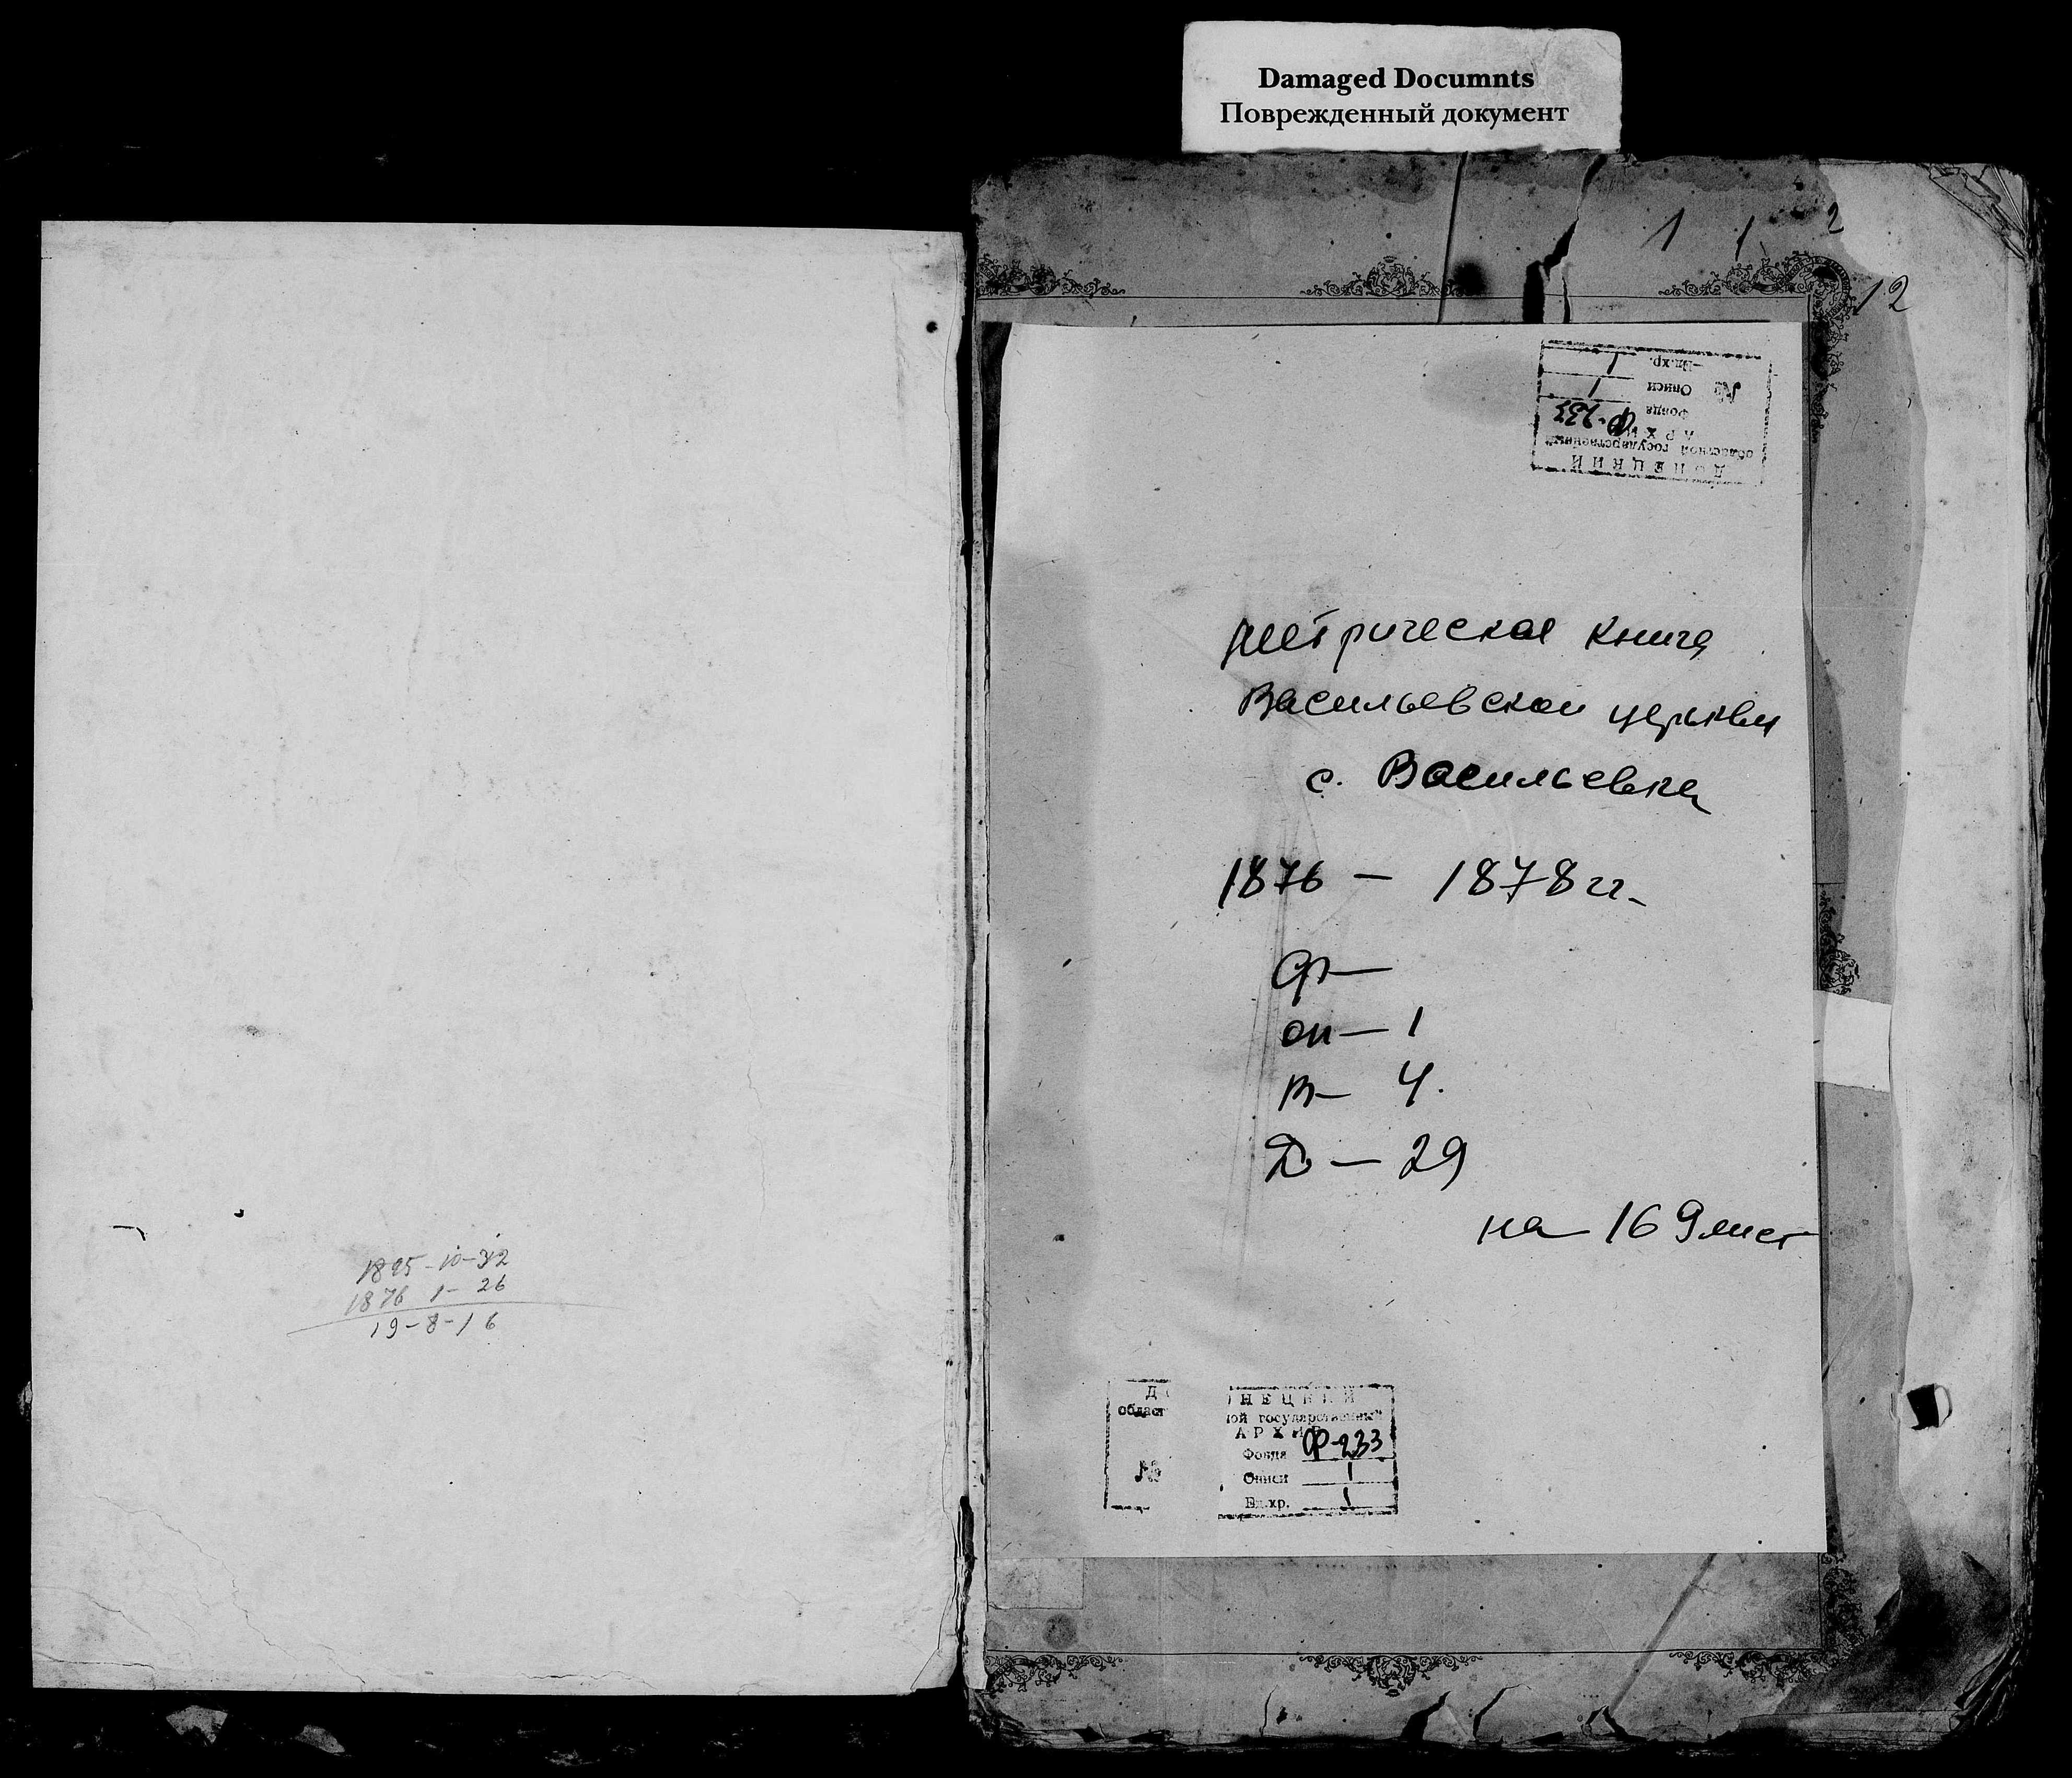 Damaged Documnts
Поврежденный документ
1 1 2
12
ДОНЕЦКИЙ
областной государственный
АРХИВ
Фонда Ф-233
№ Описи 1
Ед.хр. 1
Метрическая книга
Васильевской церкви
с. Васильевка
1876 – 1878 гг.
Ф –
оп – 1
т – 4.
Д – 29
на 169 лист
1895-10-32
1876 1-26
19-8-16
ДОНЕЦКИЙ
областной государственный
АРХИВ
Фонда Ф-233
№ Описи 1
Ед.хр. 1